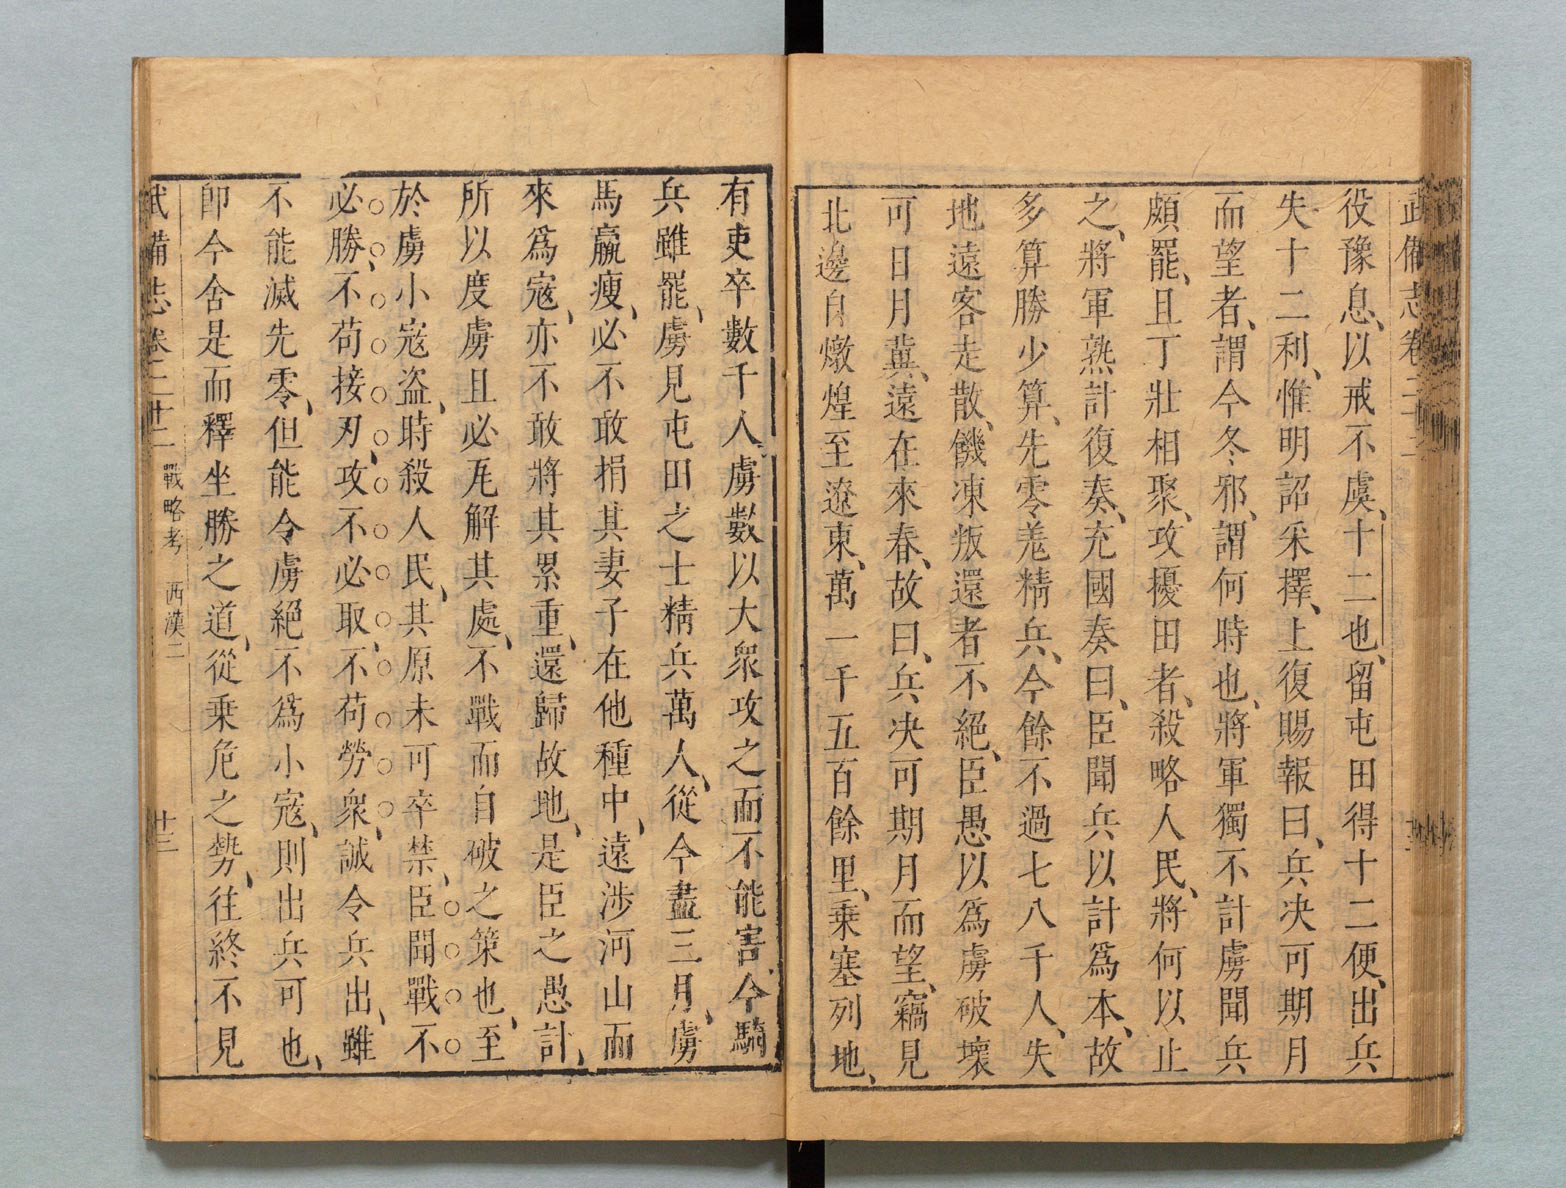 武備志卷二十二
役豫息、以戒不虞、十二也、留屯田得十二便、出兵
失十二利、惟明詔采擇、上復賜報曰、兵决可期月
而望者、謂今冬邪、謂何時也、將軍獨不計虜聞兵
頗罷、且丁壯相聚、攻擾田者、殺略人民、將何以止
之、將軍熟計復奏、充國奏曰、臣聞兵以計爲本、故
多算勝少算、先零羗精兵、今餘不過七八千人、失
地遠客走散、饑凍叛還者不絕、臣愚以爲虜破壞
可日月冀、遠在來春、故曰、兵决可期月而望、竊見
北邊自燉煌至遼東、萬一千五百餘里、乗塞列地、
有吏卒數千人虜數以大衆攻之而不能害、今騎
兵雖罷、虜見屯田之士精兵萬人、從今盡三月、虜
馬羸瘦、必不敢捐其妻子在他種中、遠涉河山而
來爲寇、亦不敢將其累重、還歸故地、是臣之愚計、
所以度虜且必瓦解其處、不戰而自破之策也、至
於虜小寇盗、時殺人民、其原未可卒禁、臣聞戰不
必勝、不苟接刃、攻不必取、不苟勞衆、誠令兵出、雖
不能滅先零、但能令虜絕不爲小寇、則出兵可也、
卽今舍是而釋坐勝之道、從乗危之勢、往終不見
武備志卷二十二 戰略考 西漢二 十三